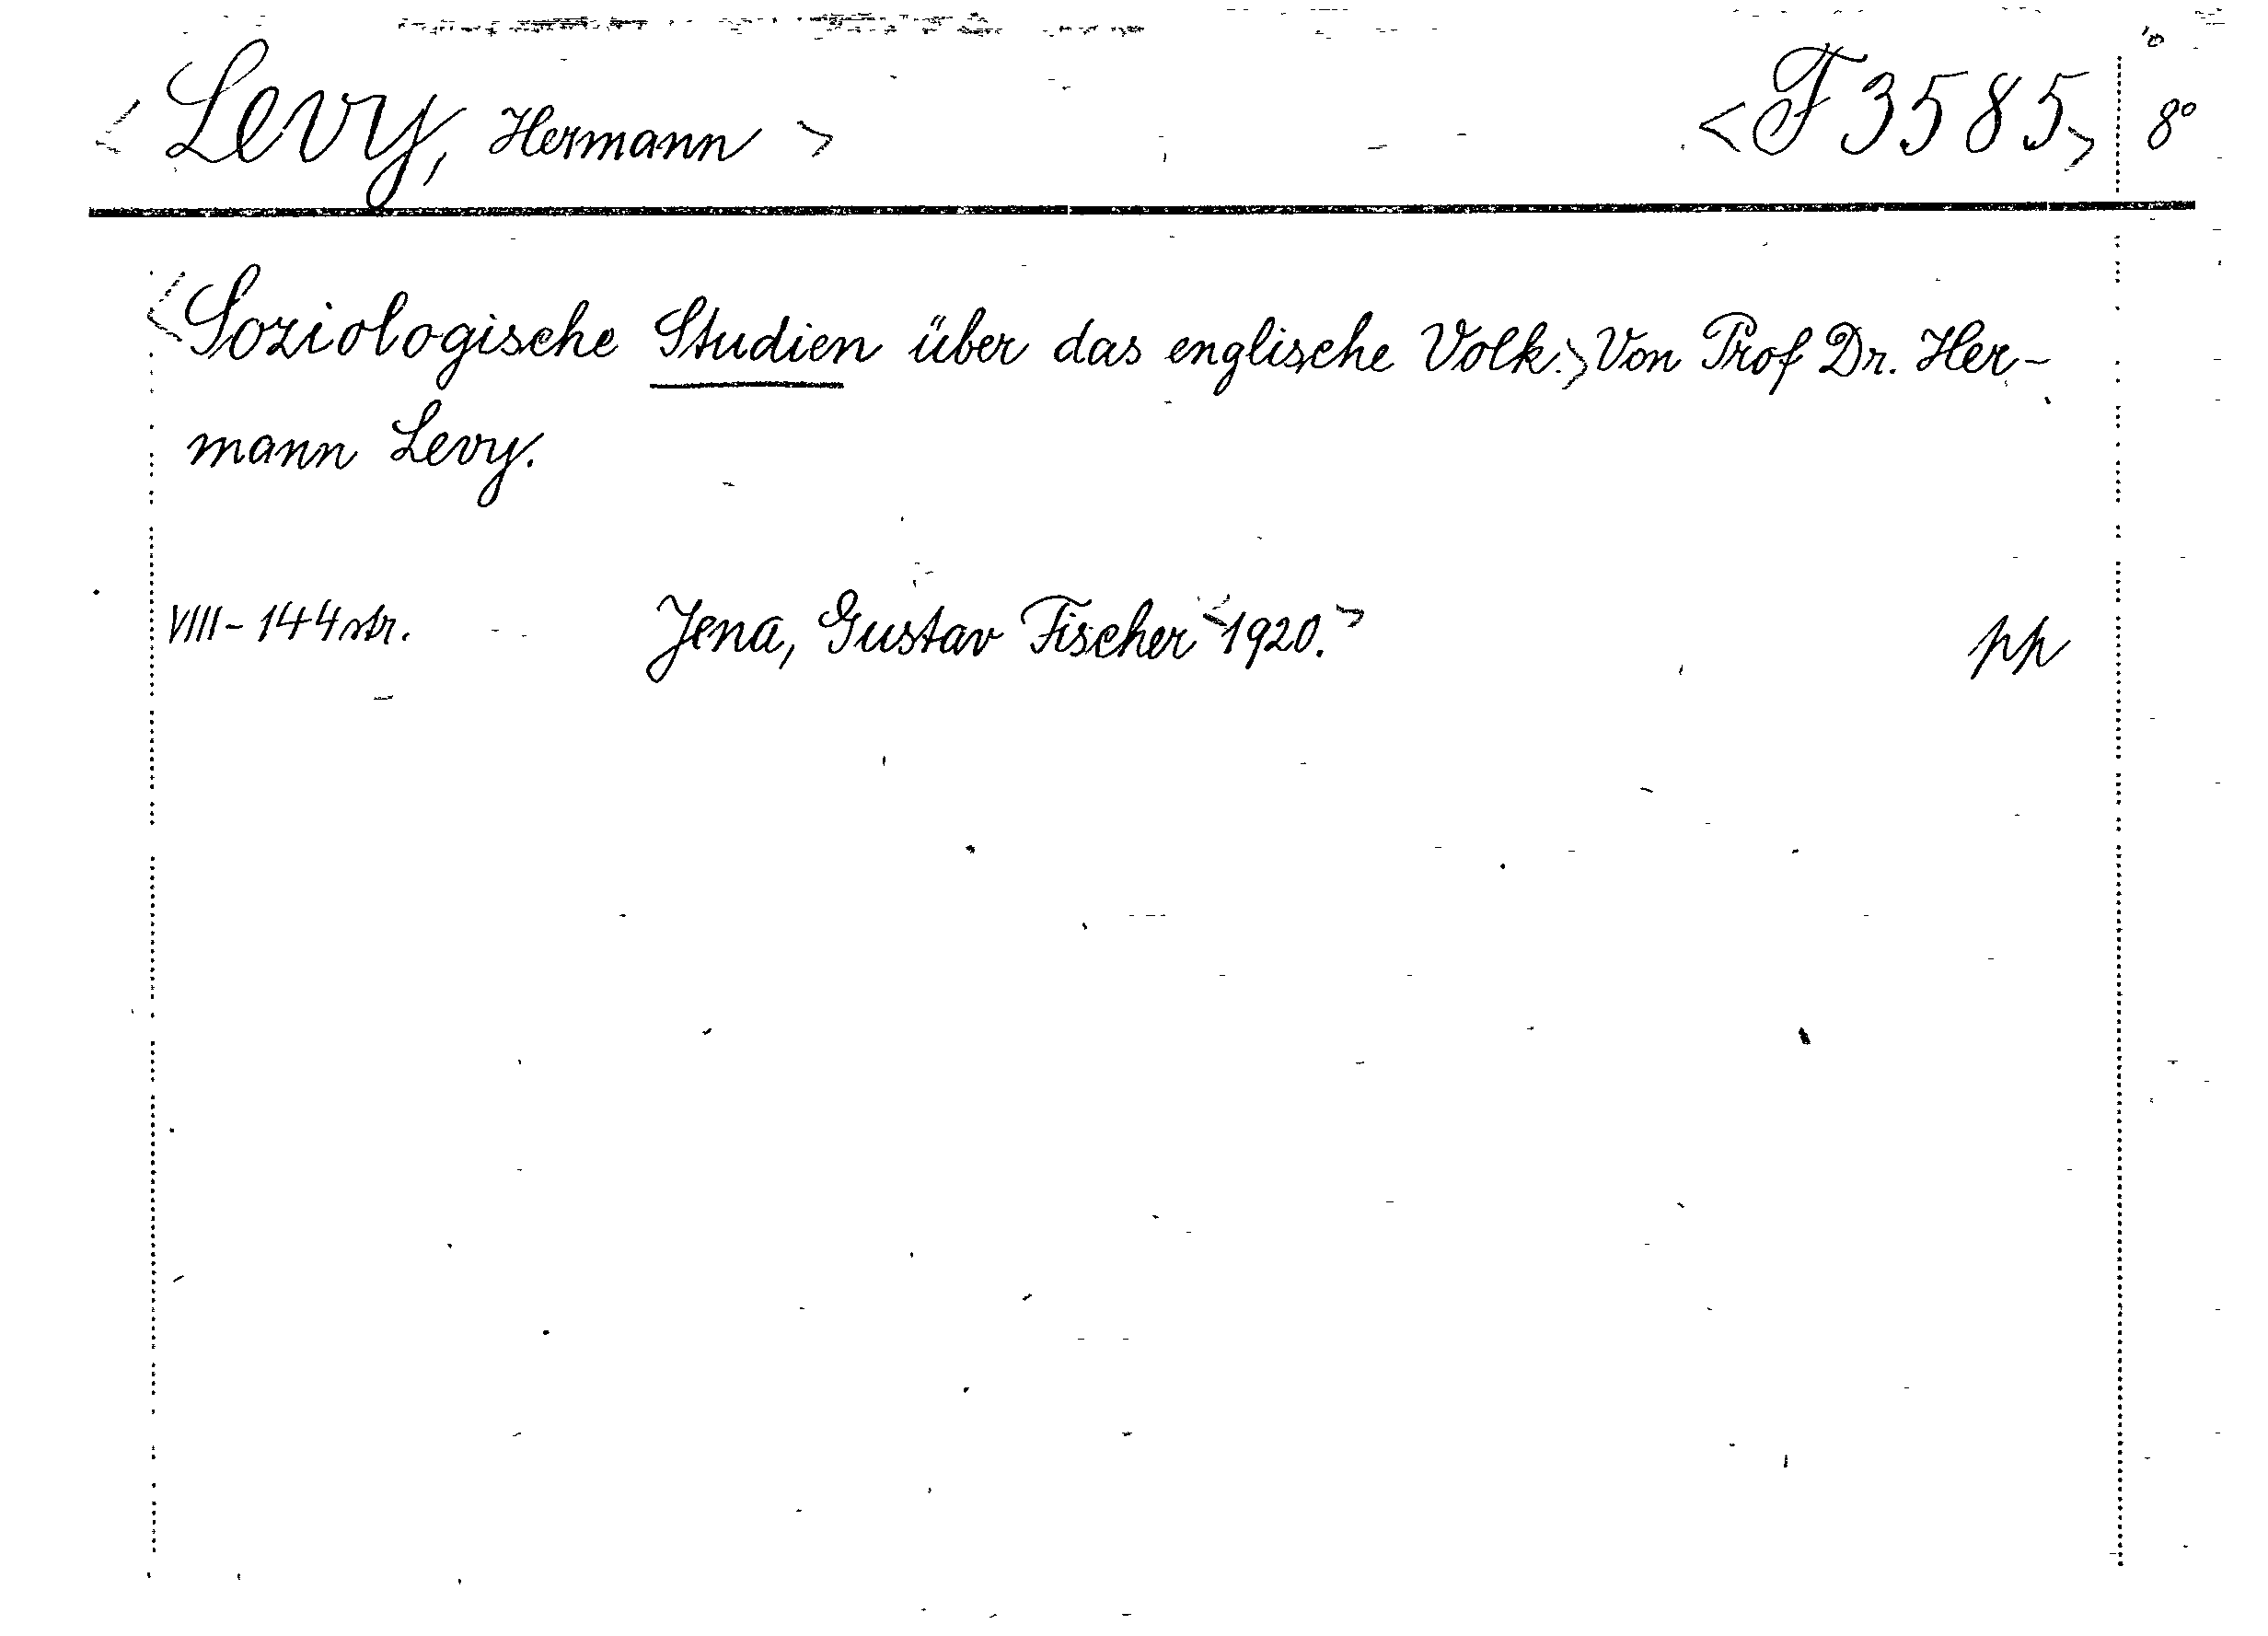 <Levy, Hermann> <F 3585> 8°
<Soziologische Studien über das englische Volk.> Von Prof Dr. Her-
mann Levy.
VIII-144 str. Jena, Gustav Fischer <1920.> pp